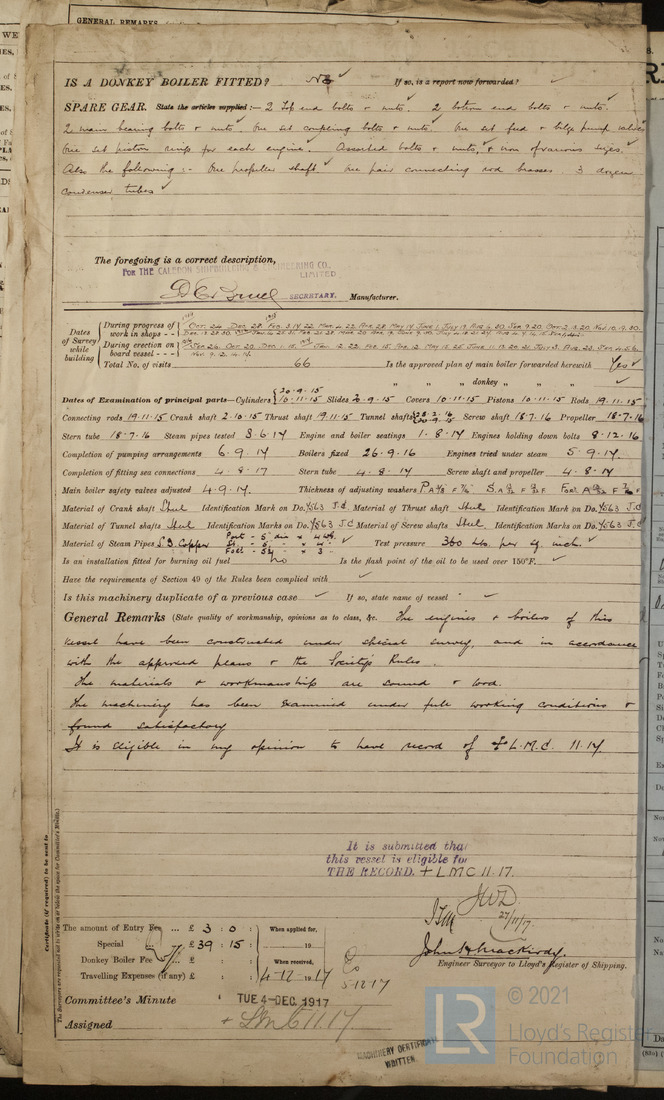 GENERAL REMARKS
IS A DONKEY BOILER FITTED? No ✓ If so, is a report now forwarded? ✓
SPARE GEAR. State the articles supplied:— 2 Top end bolts + nuts. 2 bottom end bolts + nuts.
2 main bearing bolts + nuts. One set coupling bolts + nuts. One set feed + bilge pump valves
One set piston rings for each engine. Assorted bolts + nuts, + iron of various sizes.
Also the following :- One propeller shaft ✓ One pair connecting rod brasses 3 dozen
condenser tubes ✓
The foregoing is a correct description,
FOR THE CALEDON SHIPBUILDING & ENGINEERING CO.,
LIMITED
SECRETARY. Manufacturer.
Dates of Survey while building
During progress of work in shops - -
During erection on board vessel - - -
Total No. of visits 66 Is the approved plan of main boiler forwarded herewith Yes ✓
" " " donkey " " " ✓
Dates of Examination of principal parts—Cylinders 20.9.15 10.11.15 Slides 20.9.15 Covers 10.11.15 Pistons 10.11.15 Rods 19.11.15
Connecting rods 19.11.15 Crank shaft 2.10.15 Thrust shaft 19.11.15 Tunnel shafts Screw shaft 18.7.16 Propeller 18.7.16
Stern tube 18.7.16 Steam pipes tested 8.6.17 Engine and boiler seatings 1.8.17 Engines holding down bolts 8.12.16
Completion of pumping arrangements 6.9.17 Boilers fixed 26.9.16 Engines tried under steam 5.9.17
Completion of fitting sea connections 4.8.17 Stern tube 4.8.17 Screw shaft and propeller 4.8.17
Main boiler safety valves adjusted 4.9.17. Thickness of adjusting washers
Material of Crank shaft Steel Identification Mark on Do. 4563 J.C Material of Thrust shaft Steel Identification Mark on Do. 4563 J.C
Material of Tunnel shafts Steel Identification Marks on Do. 4563 J.C Material of Screw shafts Steel Identification Marks on Do. 4563 J.C
Material of Steam Pipes S.D. Copper Test pressure 360 lbs. per sq. inch. ✓
Is an installation fitted for burning oil fuel no Is the flash point of the oil to be used over 150°F. ✓
Have the requirements of Section 49 of the Rules been complied with ✓
Is this machinery duplicate of a previous case ✓ If so, state name of vessel ✓
General Remarks (State quality of workmanship, opinions as to class, &c. The engines + boilers of this
vessel have been constructed under special survey, and in accordance
with the approved plans + the Society's Rules.
The materials + workmanship are sound + good.
The machinery has been examined under full working conditions +
found satisfactory
It is eligible in my opinion to have record of + L.M.C. 11.17
It is submitted that
this vessel is eligible for
THE RECORD. + LMC 11.17.
JWD
27/11/17
The amount of Entry Fee ... £ 3 : 0 : When applied for,
Special ... £ 39 : 15 : 19
Donkey Boiler Fee ... £ : : When received,
Travelling Expenses (if any) £ : : 4-12-1917
5.12.17
John H Mackirdy.
Engineer Surveyor to Lloyd's Register of Shipping.
Committee's Minute TUE 4-DEC. 1917
Assigned + LMC 11.17
MACHINERY CERTIFICATE
WRITTEN.
Certificate (if required) to be sent to
The Surveyors are requested not to write on or below the space for Committee's Minute.
LR
© 2021
Lloyd's Register
Foundation